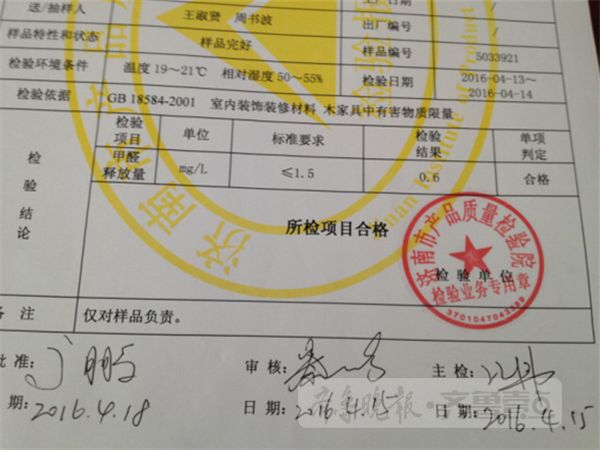 送/抽样人 王淑贤 周书波 生产日期 /
出厂编号 /
样品特性和状态 样品完好 样品编号 5033921
检验环境条件 温度 19～21℃ 相对湿度 50～55% 检验日期 2016-04-13～
2016-04-14
检验依据 GB 18584-2001 室内装饰装修材料 木家具中有害物质限量
检验项目 单位 标准要求 检验结果 单项判定
甲醛释放量 mg/L ≤1.5 0.6 合格
检验结论
所检项目合格
检验单位
济南市产品质量检验院
检验业务专用章
3701047043389
备注 仅对样品负责。
批准: 审核: 主检:
期: 2016.4.18 日期: 2016.4.15 日期: 2016.4.15
齐鲁晚报·齐鲁壹点